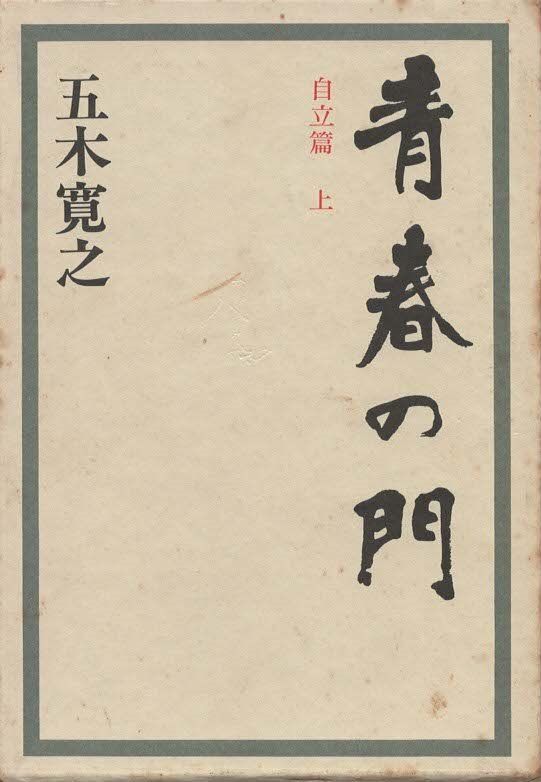 青春の門
自立篇 上
五木寛之